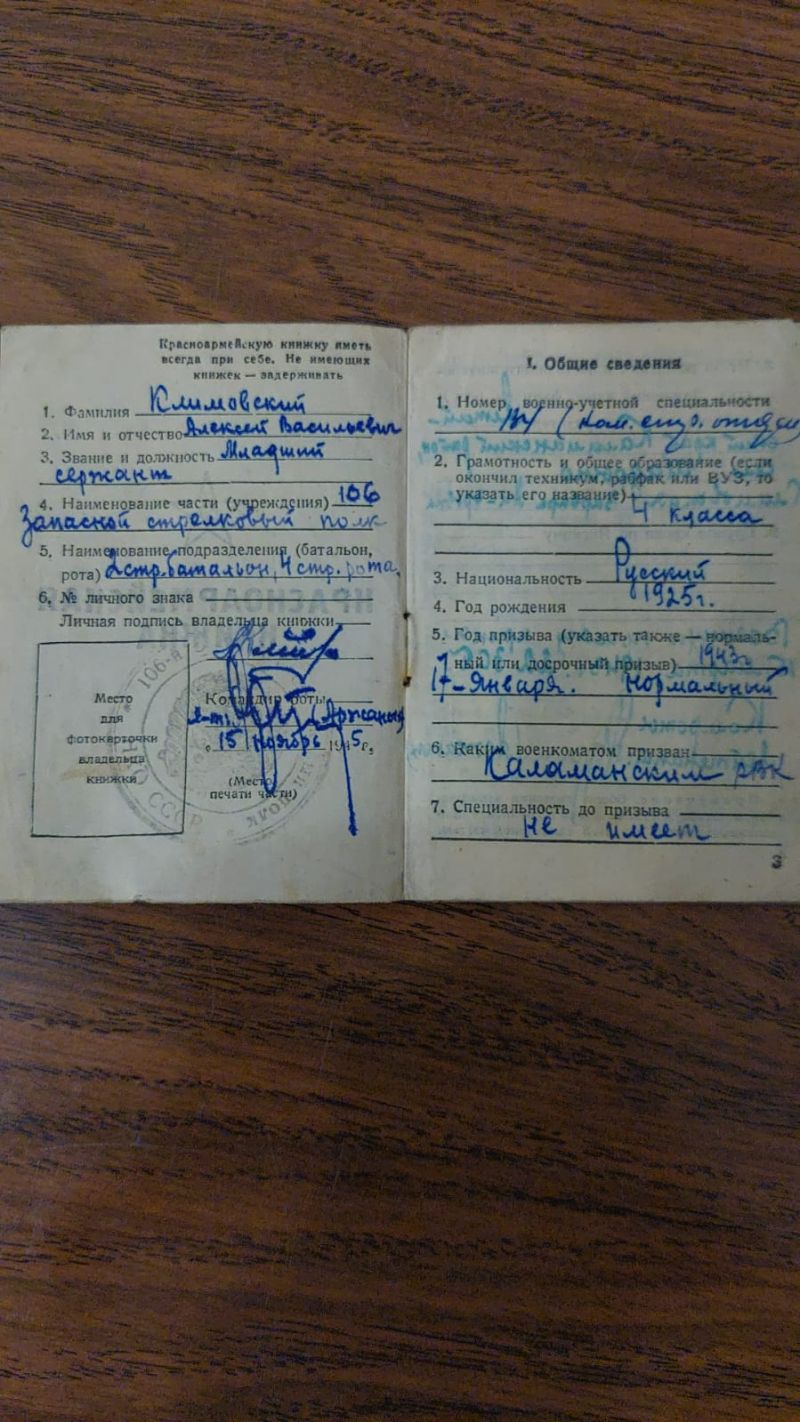 Красноармейскую книжку иметь
всегда при себе. Не имеющих
книжек — задерживать
1. Фамилия Климовский
2. Имя и отчество Алексей Васильевич
3. Звание и должность Младший
сержант
4. Наименование части (учреждения) 106
Запасной стрелковый полк
5. Наименование подразделения (батальон,
рота) стр. батальон, 4 стр. рота,
6. № личного знака
Личная подпись владельца книжки
Место
для
фотокарточки
владельца
книжки
Командир роты
15 Ноябрь 1945 г.
(Место
печати части)
СССР
I. Общие сведения
1. Номер военно-учетной специальности
(ком.
2. Грамотность и общее образование (если
окончил техникум, рабфак или ВУЗ, то
указать его название)
4 класса
3. Национальность Русский
4. Год рождения 1925г.
5. Год призыва (указать также — нормаль-
ный или досрочный призыв) 1943г.
17-Января. Нормальный
6. Каким военкоматом призван
Каламанским РВК
7. Специальность до призыва
не имеет
3